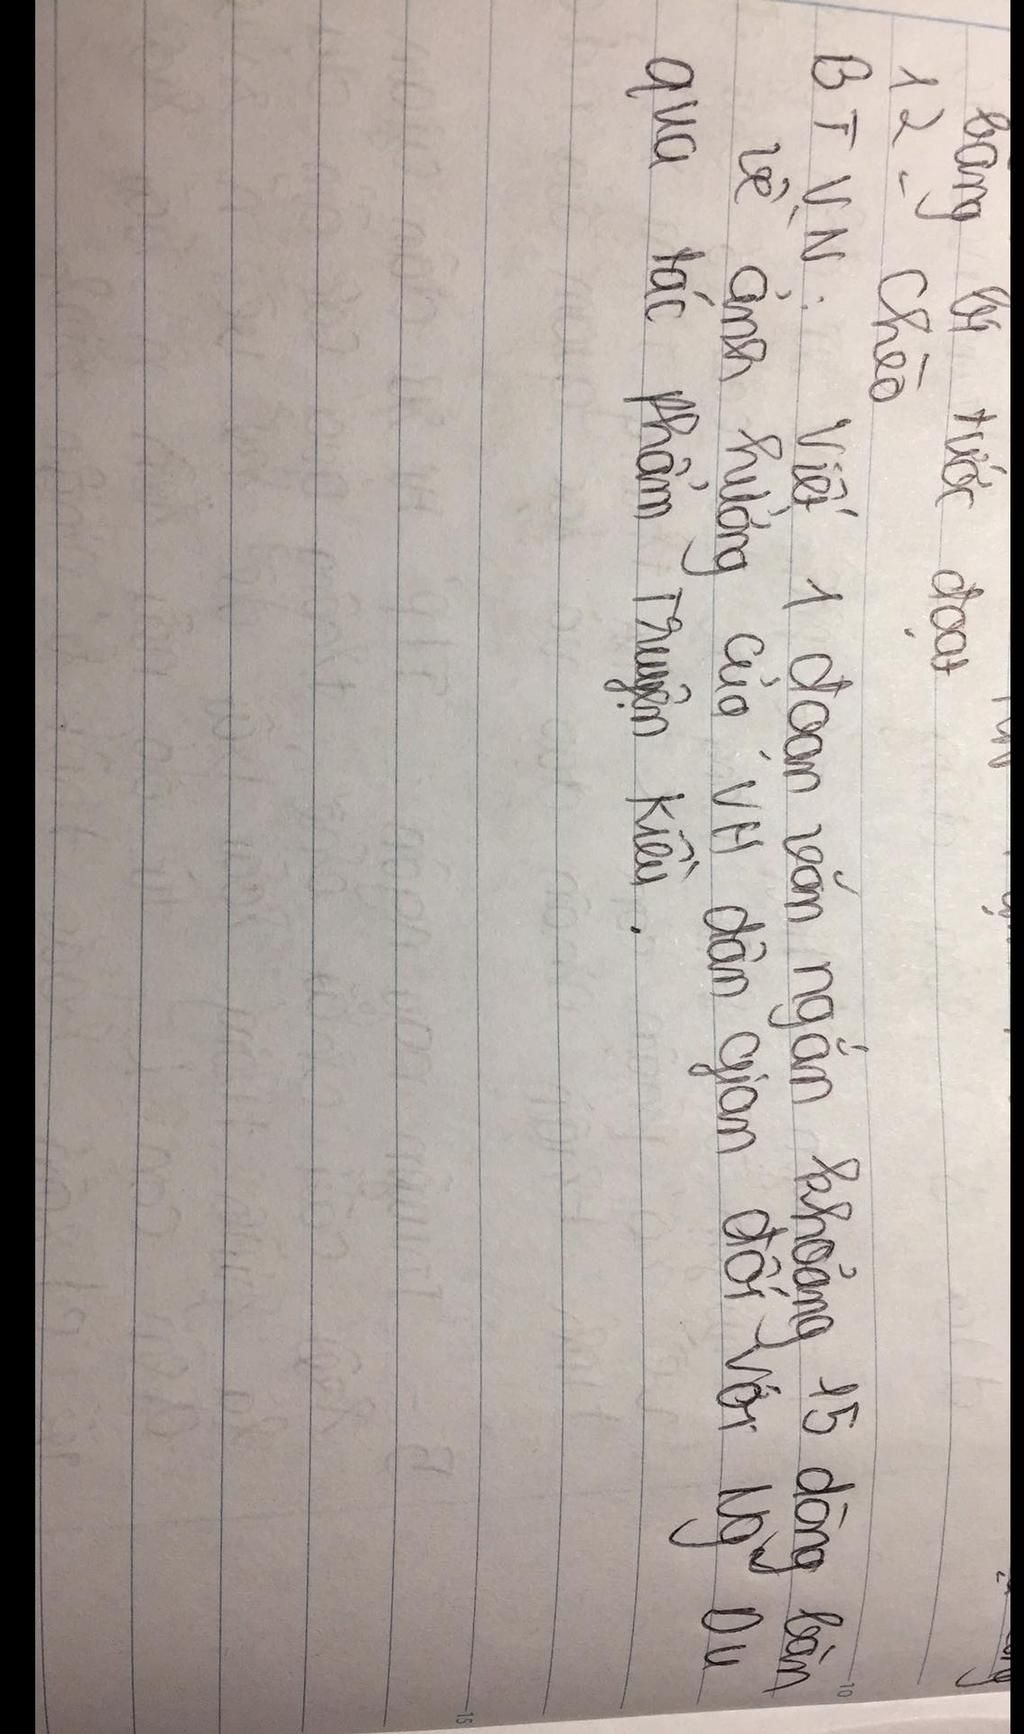 bằng bị tước đoạt
12 - Chèo
BTVN: Viết 1 đoạn văn ngắn khoảng 15 dòng bàn
về ảnh hưởng của VH dân gian đối với Ng Du
qua tác phẩm Truyện Kiều.
10
15